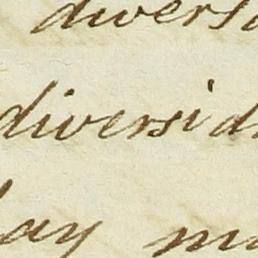 divers
diversid
ay m